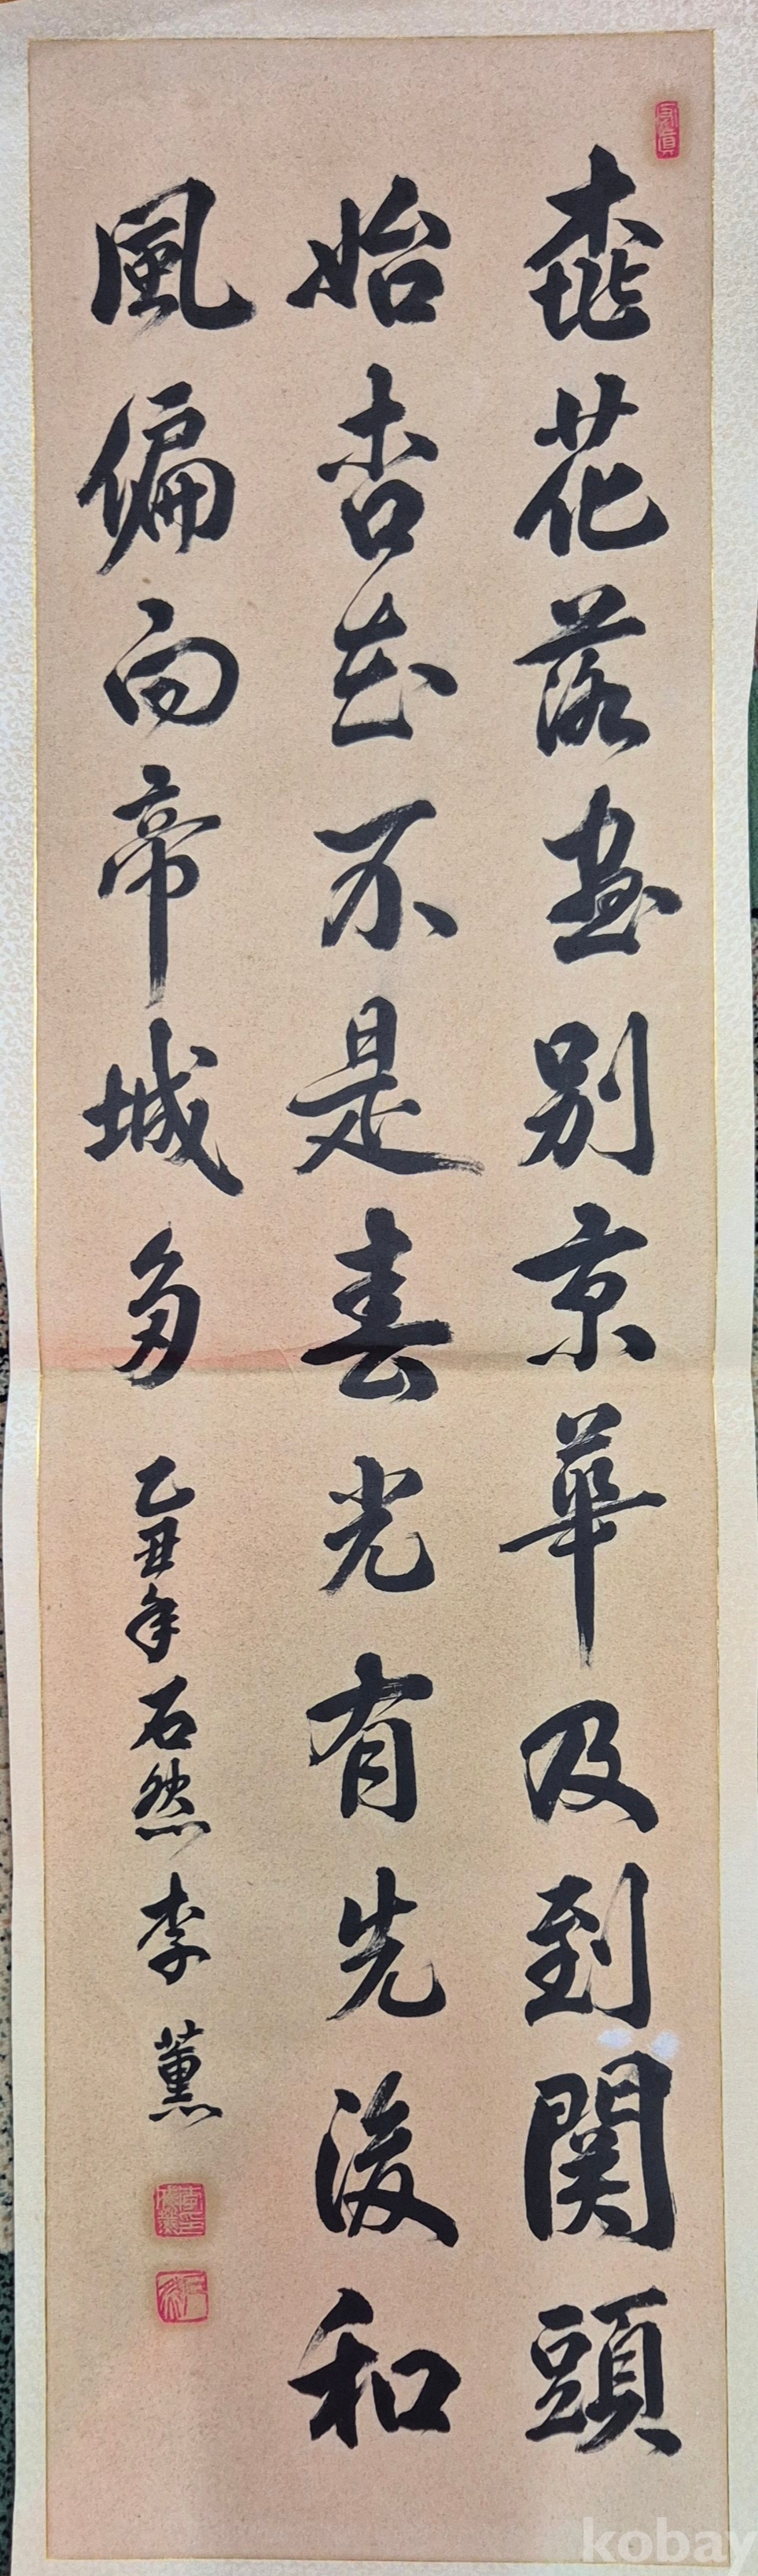 桃花落盡別京華及到関頭
始杏花不是春光有先後和
風偏向帝城多 乙丑年 石然 李薰
kobay